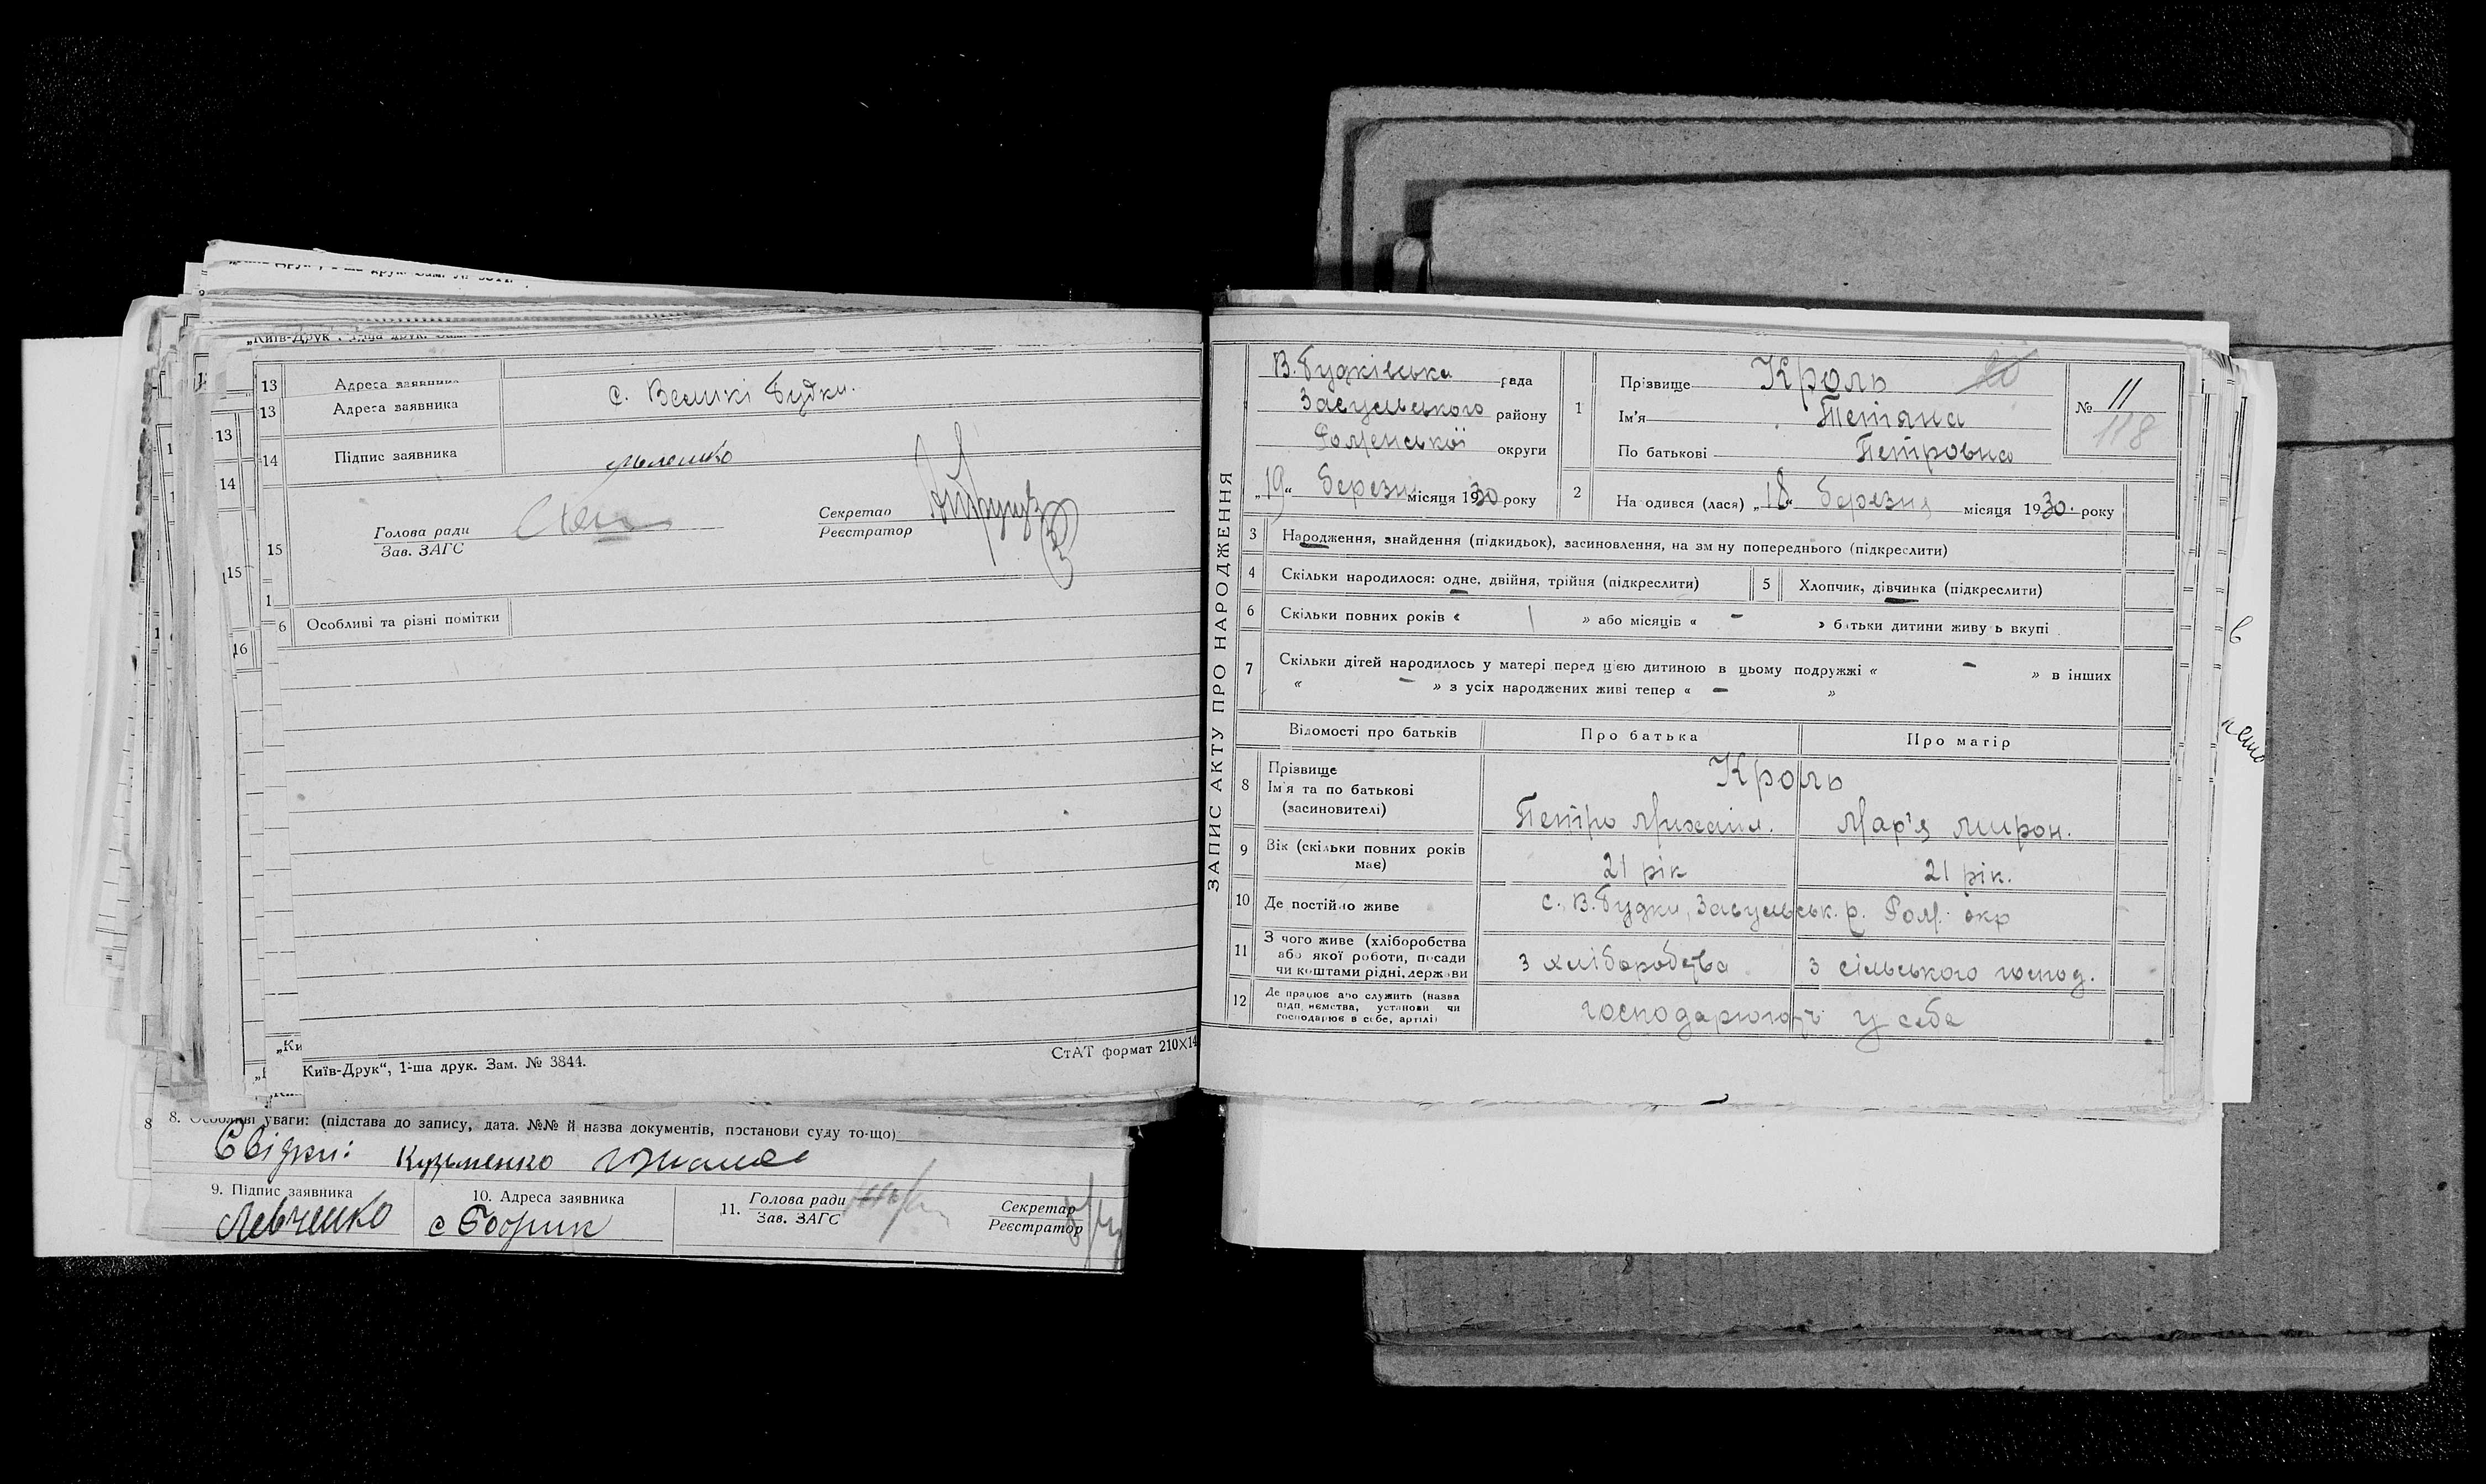 „Київ-Друк", 1-ша друк. Зам.
13 Адреса заявника
13 Адреса заявника с. Великі Будки.
14 Підпис заявника
15 Голова ради
Зав. ЗАГС
Секретар
Реєстратор
6 Особливі та різні помітки
Київ-Друк", 1-ша друк. Зам. № 3844.
СтАТ формат 210×14
8. Особливі уваги: (підстава до запису, дата. №№ й назва документів, постанови суду то-що)
Свідки: Кузьменко
9. Підпис заявника
Левченко
10. Адреса заявника
11. Голова ради
Зав. ЗАГС
Секретар
Реєстратор
ЗАПИС АКТУ ПРО НАРОДЖЕННЯ
В. Будківська рада
Засульського району
Роменської округи
„19" березня місяця 1930 року
1 Прізвище Кроль
Ім'я Тетяна
По батькові Петровна
№ 11
118
2 На одився (лася) „18" березня місяця 1930. року
3 Народження, знайдення (підкидьок), засиновлення, на зм ну попереднього (підкреслити)
4 Скільки народилося: одне, двійня, трійня (підкреслити)
5 Хлопчик, дівчинка (підкреслити)
6 Скільки повних років « 1 » або місяців « – » батьки дитини живу ь вкупі
7 Скільки дітей народилось у матері перед цією дитиною в цьому подружжі « – » в інших
« – » з усіх народжених живі тепер « – »
Відомості про батьків Про батька Про матір
8 Прізвище
Ім'я та по батькові
(засиновителі)
Кроль
Петро Михайл. Мар'я Мирон.
9 Вік (скільки повних років має) 21 рік 21 рік.
10 Де постійно живе с. В. Будки, Засульськ. р. Ром. окр
11 З чого живе (хліборобства
або якої роботи, посади
чи коштами рідні, держави
з хліборобства з сільського господ.
12 Де працює або служить (назва
підп иємства, установи чи
господарює в себе, артілі)
господарюють у себе